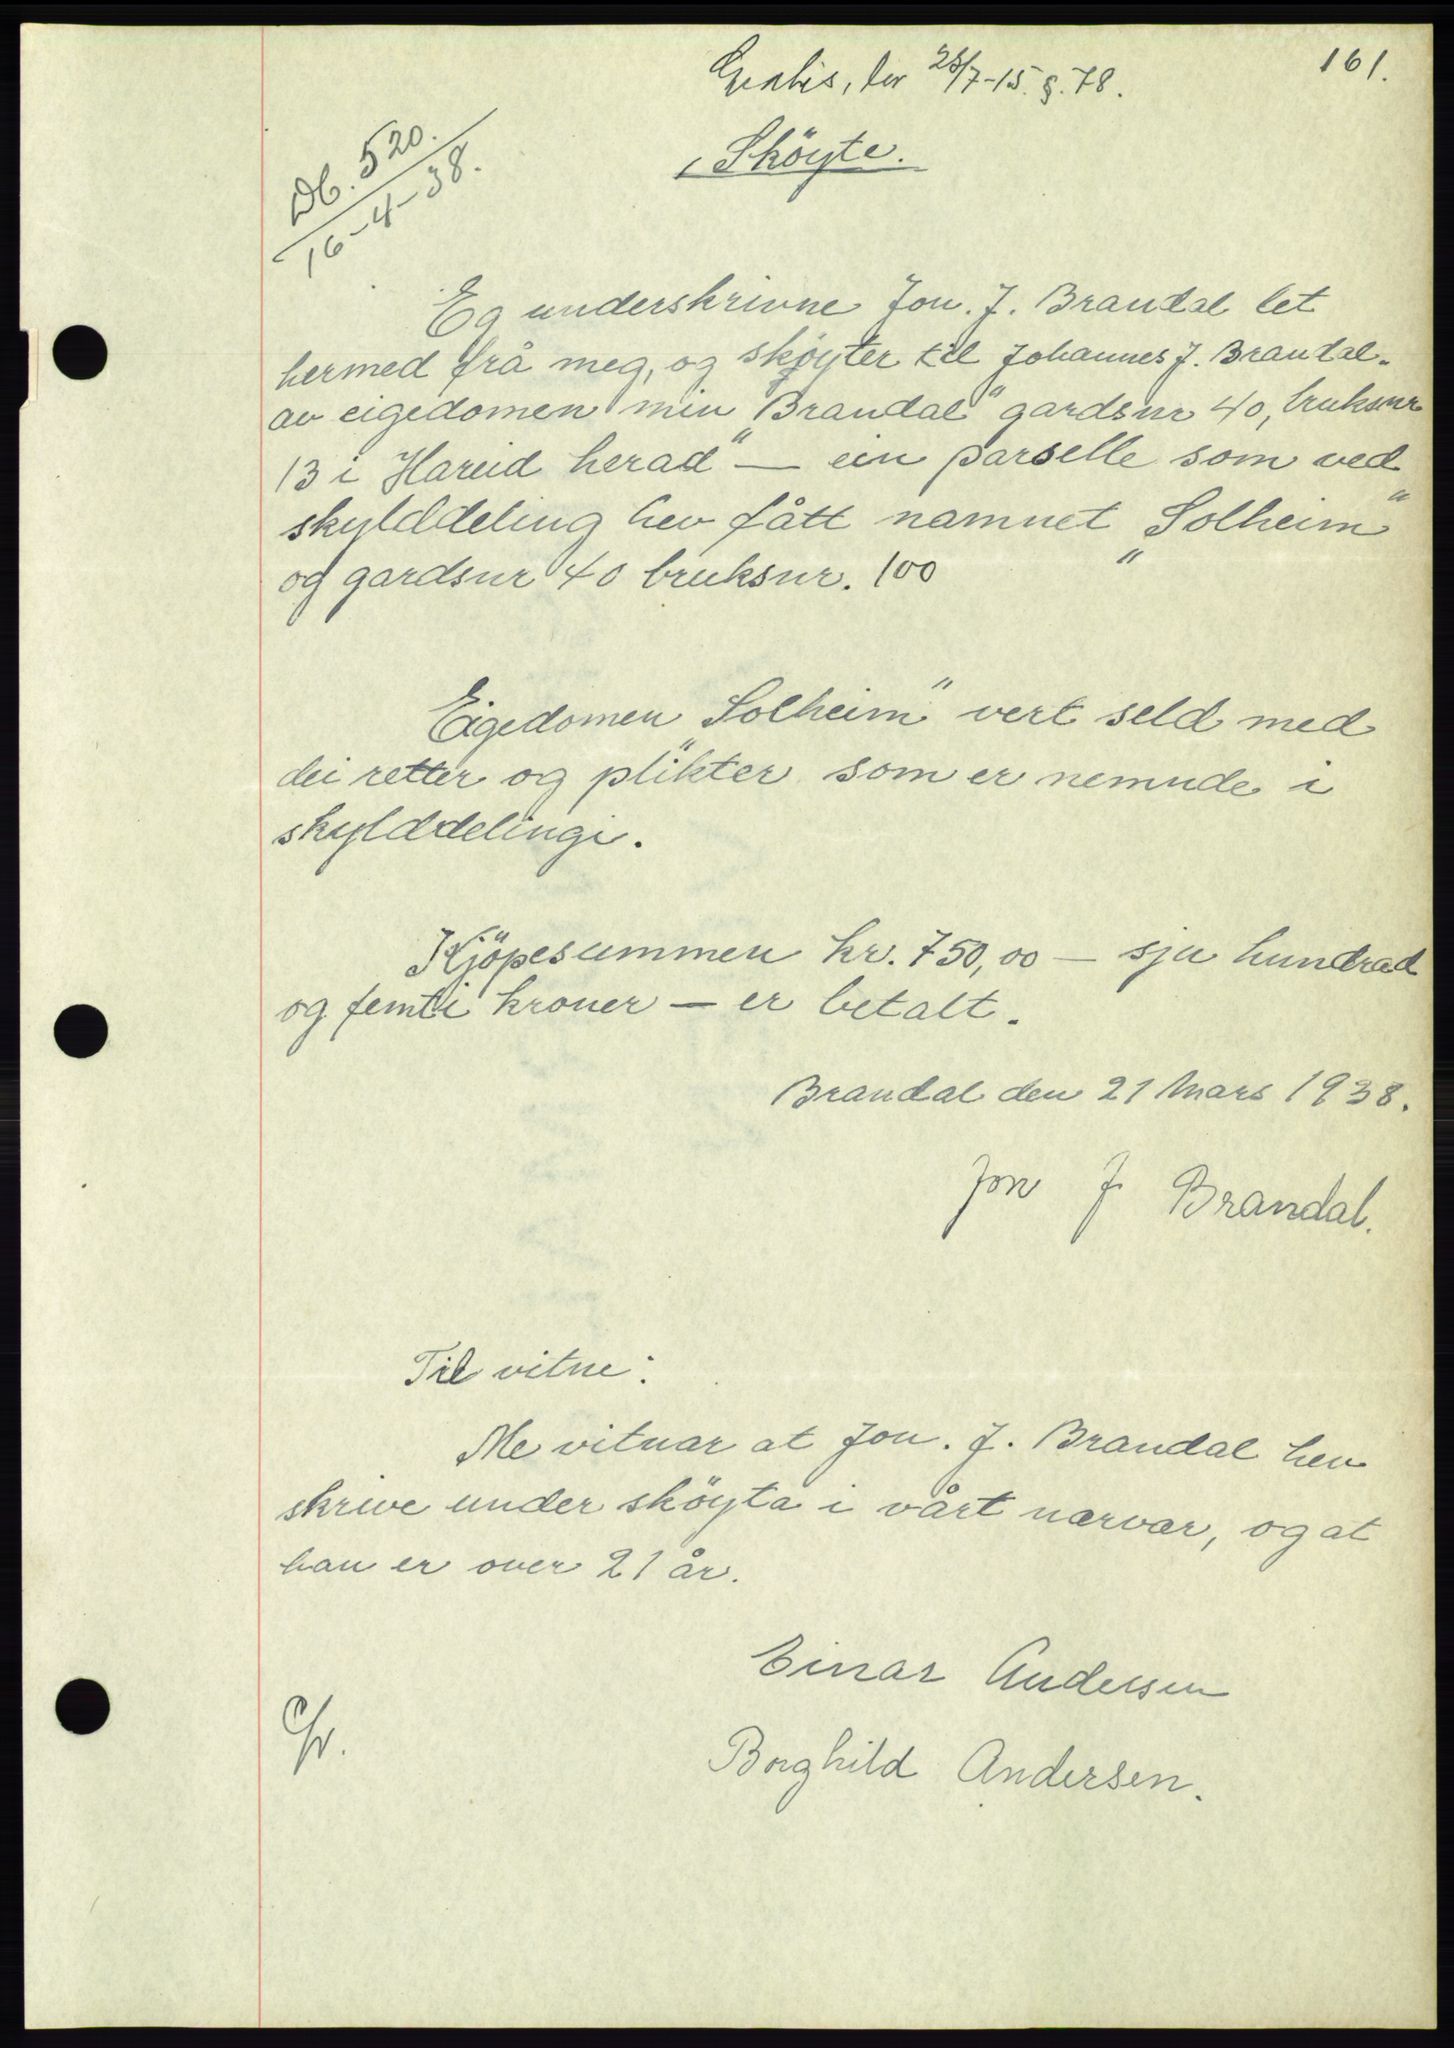 161.
Gratis, lov 28/7-15. §. 78.
Sköyte.
Db. 520.
16-4-38.
Eg underskrivne Jon. J. Brandal let
hermed frå meg, og sköyter til Johannes J. Brandal.
av eigedomen min "Brandal" gardsnr 40, bruksnr
13 i Hareid herad — ein parselle som ved
skylddeling hev fått namnet "Solheim"
og gardsnr 40 bruksnr. 100
Eigedomen "Solheim" vert seld med
dei retter og plikter som er nemnde i
skylddelingi.
Kjöpesummen kr. 750,00 — sju hundrad
og femti kroner — er betalt.
Brandal den 21 Mars 1938.
Jon J. Brandal.
Til vitne:
Me vitnar at Jon. J. Brandal hev
skrive under sköyta i vårt nærvær, og at
han er over 21 år.
Einar Andersen
Borghild Andersen.